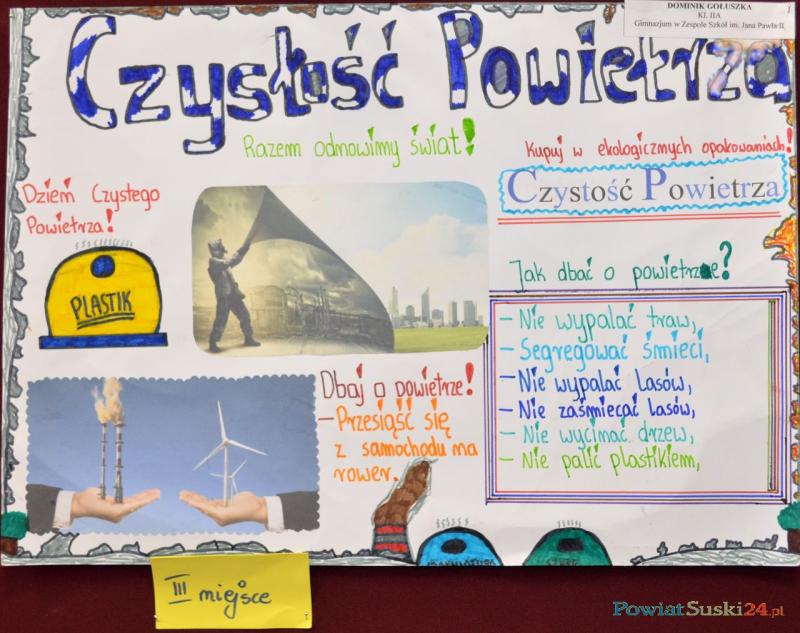 DOMINIK GOŁUSZKA
Kl. IIA
Gimnazjum w Zespole Szkół im. Jana Pawła II
Czystość Powietrza
Razem odnowimy świat!
Kupuj w ekologicznych opakowaniach!
Czystość Powietrza
Dzień Czystego
Powietrza!
PLASTIK
Jak dbać o powietrze?
- Nie wypalać traw,
- Segregować śmieci,
- Nie wypalać lasów,
- Nie zaśmiecać lasów,
- Nie wycinać drzew,
- Nie palić plastikiem,
Dbaj o powietrze!
- Przesiąść się
z samochodu na
rower.
III miejsce
PowiatSuski24.pl